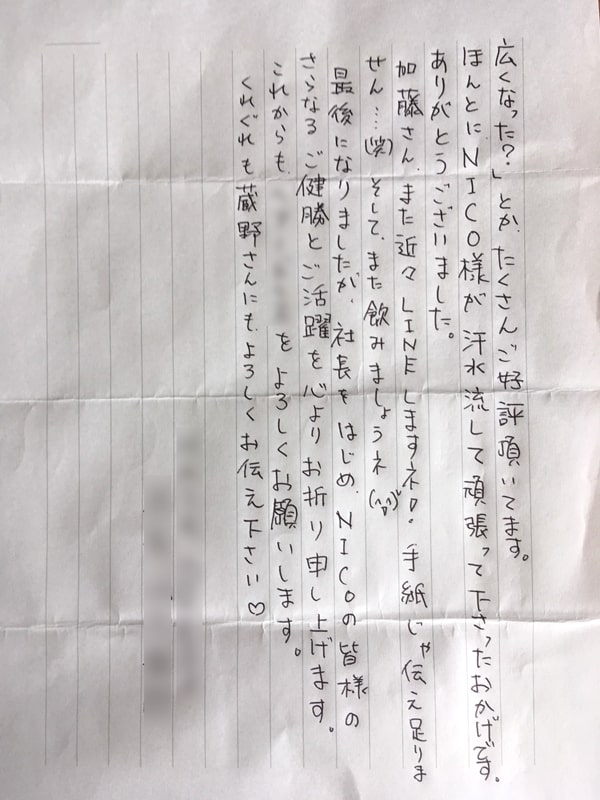 広くなった?」とか、たくさんご好評頂いてます。
ほんとに、NICO様が汗水流して頑張って下さったおかげです。
ありがとうございました。
加藤さん、また近々LINEしますネ!。手紙じゃ伝え足りま
せん…(笑)そして、また飲みましょうネ(^^)
最後になりましたが、社長をはじめ、NICOの皆様の
さらなるご健勝とご活躍を心よりお祈り申し上げます。
これからも、をよろしくお願いします。
くれぐれも蔵野さんにも、よろしくお伝え下さい♡